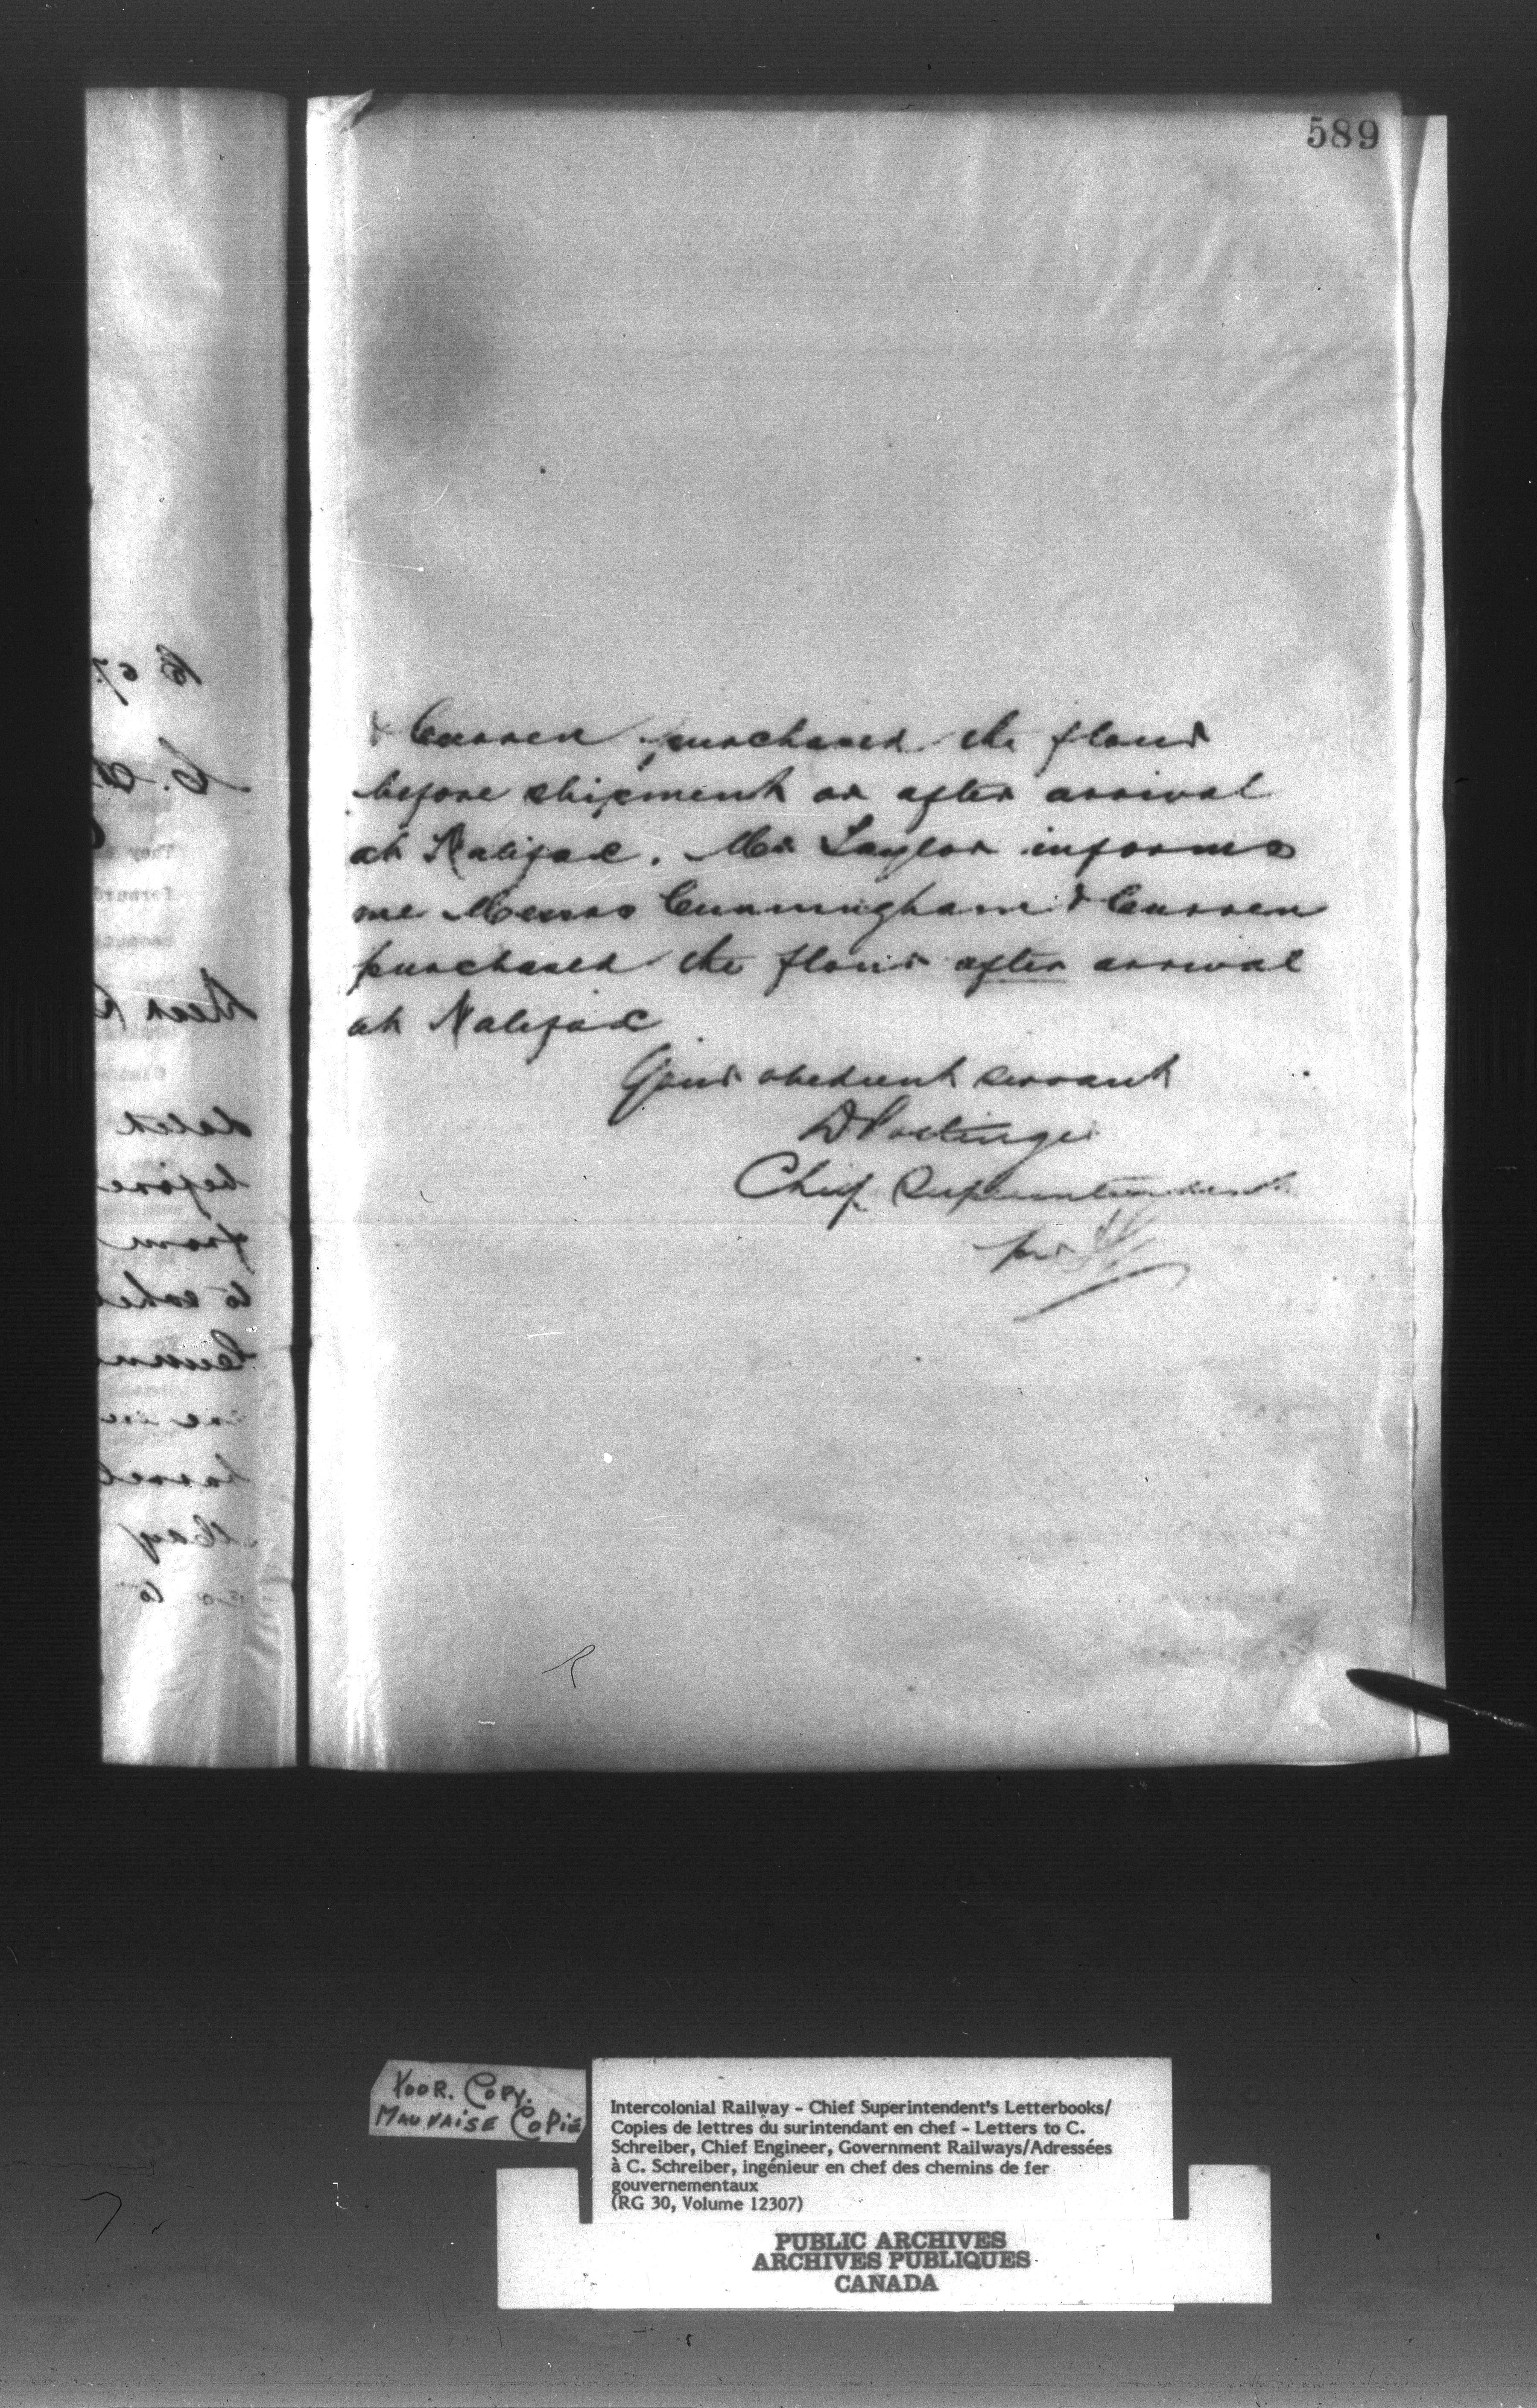 589
& Curren purchased the flour
before shipment or after arrival
at Halifax. Mr Taylor informs
me Messrs Cunningham & Curren
purchased the flour after arrival
at Halifax
Your obedient servant
D Pottinger
Chief Superintendent
per
POOR. COPY.
MAUVAISE COPIE
Intercolonial Railway - Chief Superintendent's Letterbooks/
Copies de lettres du surintendant en chef - Letters to C.
Schreiber, Chief Engineer, Government Railways/Adressées
à C. Schreiber, ingénieur en chef des chemins de fer
gouvernementaux
(RG 30, Volume 12307)
PUBLIC ARCHIVES
ARCHIVES PUBLIQUES
CANADA